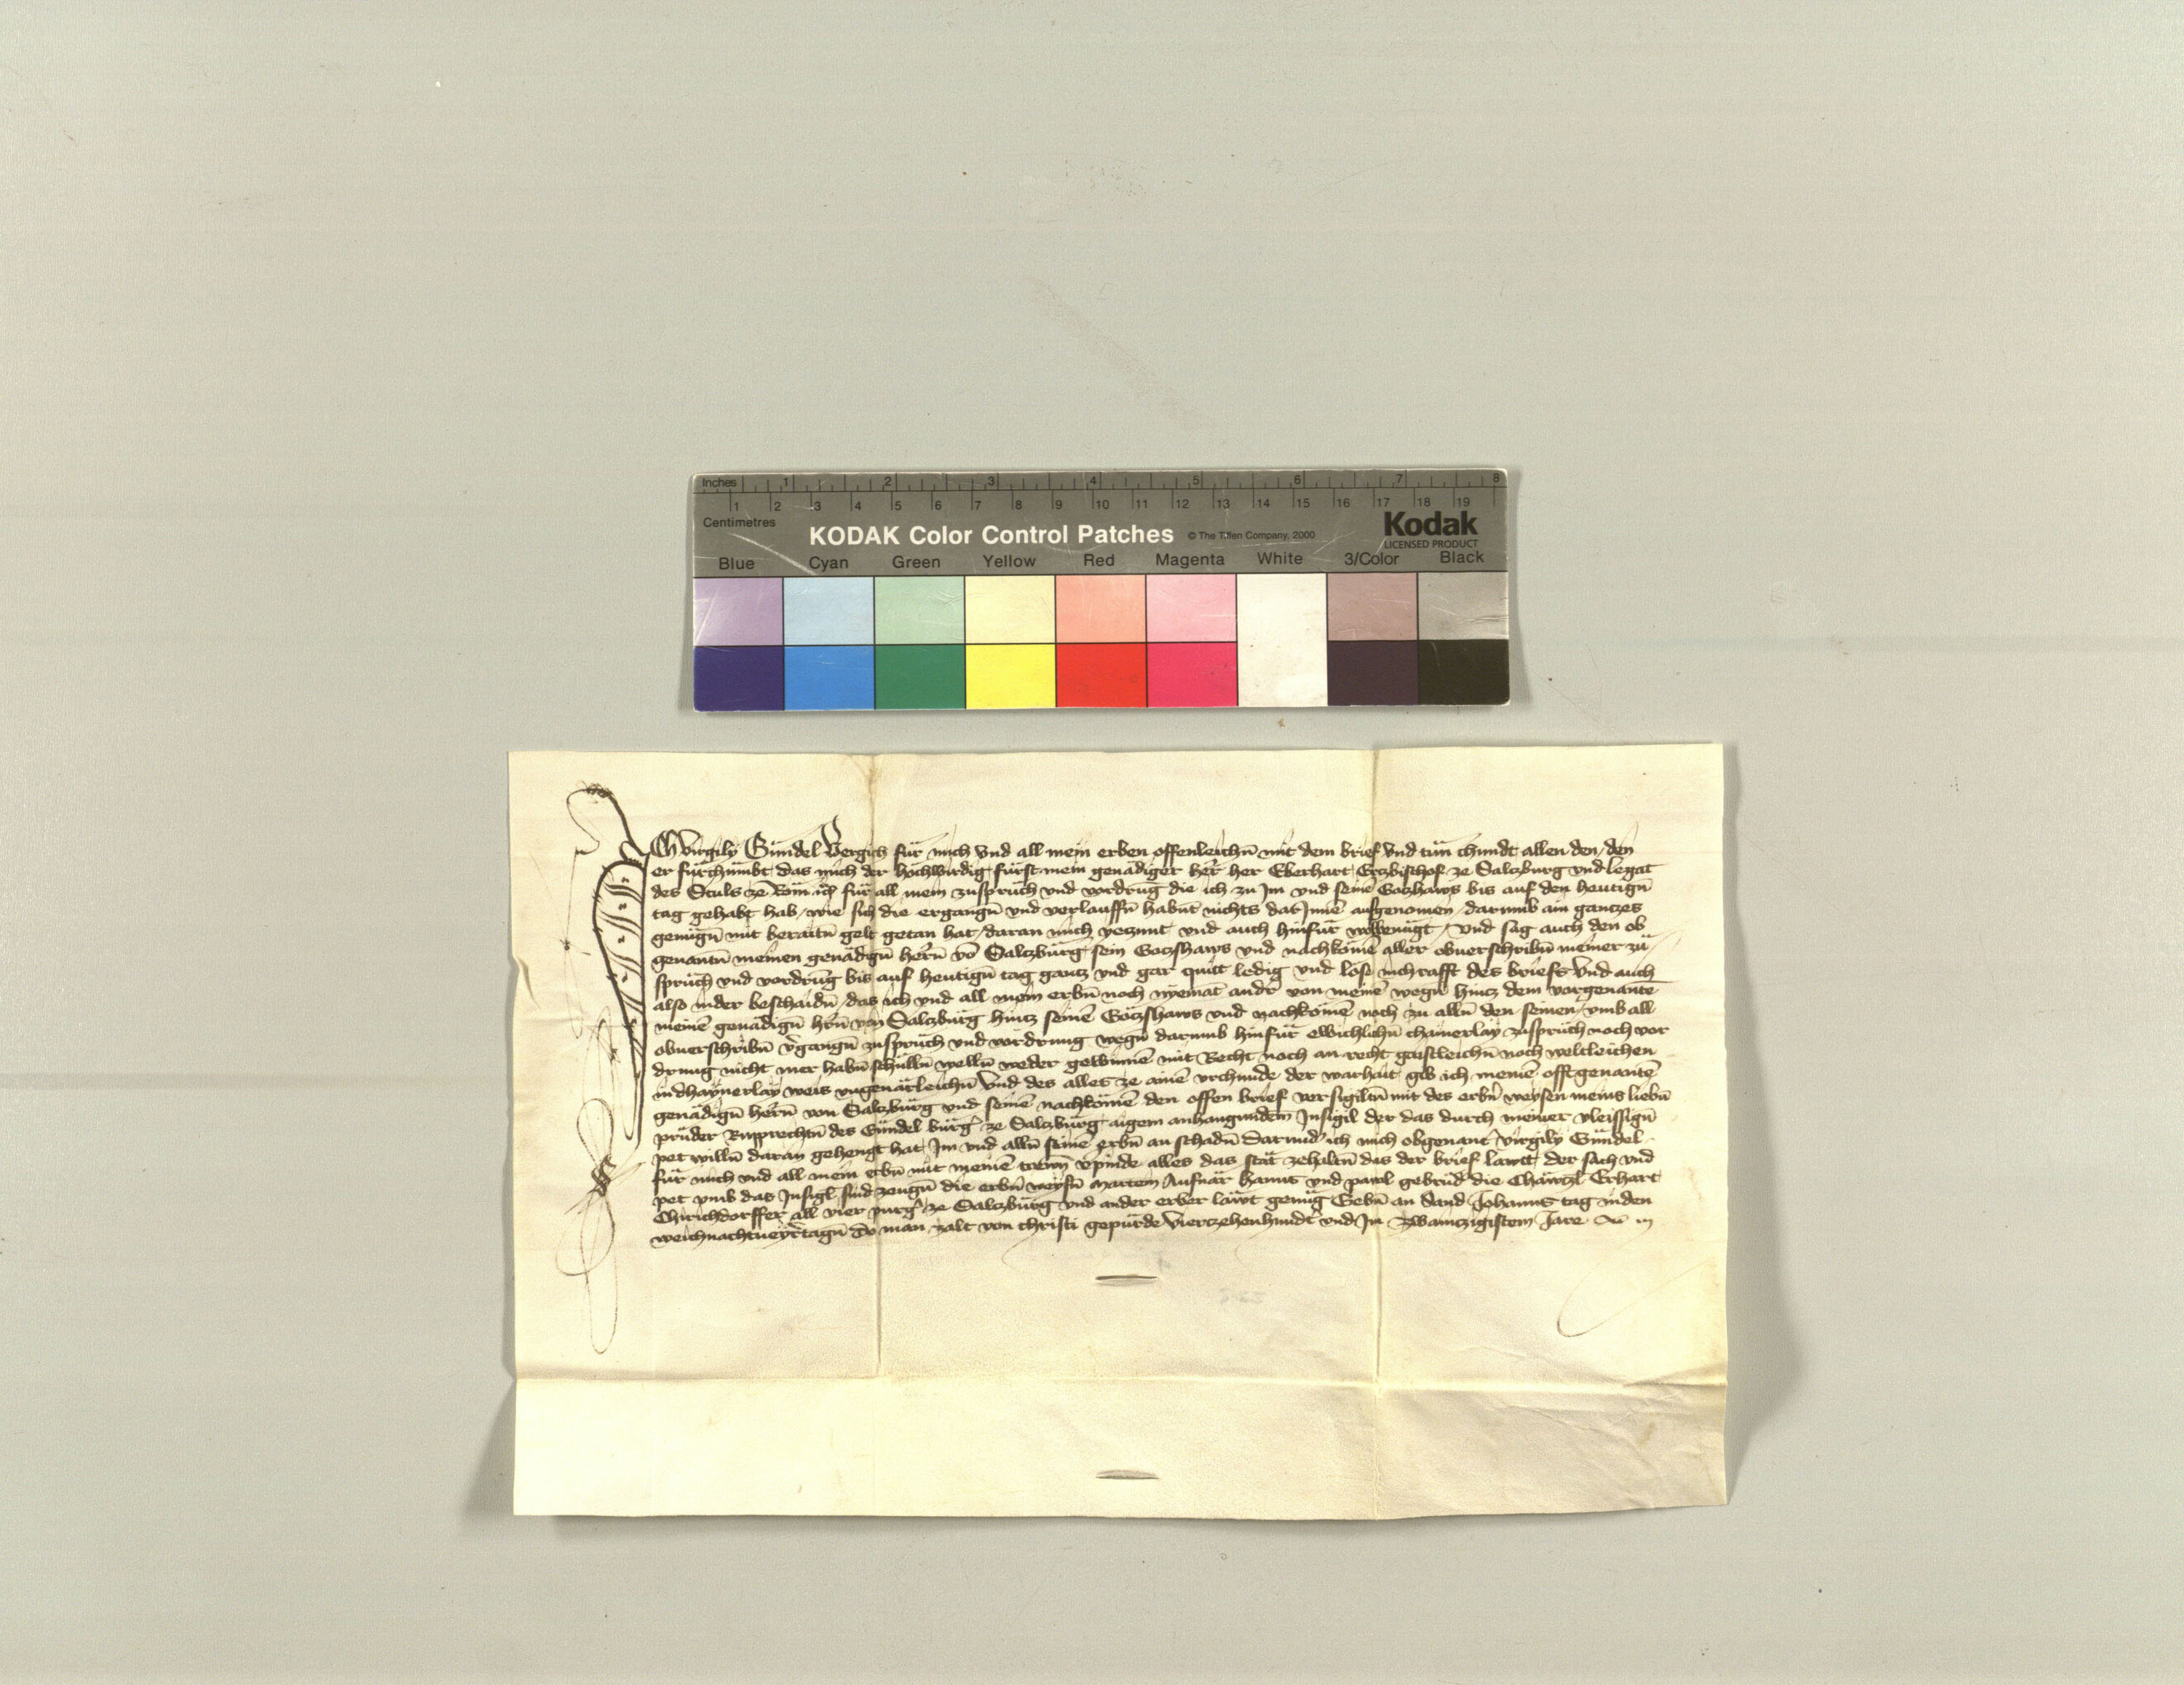 Inches 1 2 3 4 5 6 7 8
1 2 3 4 5 6 7 8 9 10 11 12 13 14 15 16 17 18 19
Centimetres
KODAK Color Control Patches © The Tiffen Company, 2000 Kodak
LICENSED PRODUCT
Blue Cyan Green Yellow Red Magenta White 3/Color Black
Ich virgily Gündel Vergich für mich Vnd all mein erben offenleichñ mit dem brief Vnd tün chundt allen den, den
er fürchumbt, das mich der hochwirdig fürst mein genädiger her̄ her Eberhart Erczbischof ze Salczburg vnd legat
des Stuls ze Rom für all mein zuspruch vnd vordrūg die ich zu Im vnd seinē Goczhaws bis auf den heutigñ
tag gehabt hab, wie sich die ergangñ vnd verlauffñ habnt nichts dar Innē ausgenomen, darumb ain ganczes
genügñ mit beraitñ gelt getan hat, daran mich yeczunt vnd auch hinfür wolbenügt, Vnd sag auch den ob
genantñ meinen genädigñ hern̄ vō Salczbürg sein Goczhaws vnd nachkomē aller obuerschribñ meiner zü
sprüch vnd vordrūg bis auf heutigñ tag gancz vnd gar quitt ledig vnd los mit chrafft des briefs Vnd auch
also in der beschaidñ, das ich vnd all mein erbñ noch nyemat andr̄ von meinē wegñ hincz dem vorgenantē
meinē genädigñ hern̄ von Salczbürg hincz seinē Goczhaws vnd nachkomē noch zu allñ den seinen, vmb all
obuerschribñ vgangñ zuspruch vnd vordrung wegñ darumb hinfür ewichlichñ chainerlay zuspruch noch vor
drung nicht mer habñ schüllñ wellñ weder gewinnē mit Recht noch an recht gaistleichñ noch weltleichen
in dhaynerlay weis vngeuärleichñ Vnd des alles ze ainē vrchunde der warhait gib ich meinē offtgenantē
genädigñ hern̄ von Salczbürg vnd seinē nachkomē den offen brief versigiltñ mit des erbñ weysen meins liebñ
prüder Rupprechtñ des Gündel bürg̉ ze Salczbürg aigem anhangundem Insigil der das durch meiner vleissigñ
pet willñ daran gehengt hat Im vnd allñ seinē erbñ an schadñ Darund̉ ich mich obgenant virgily Gündel
für mich vnd all mein erbñ mit meinē trewñ v̉pinde alles das stät zehaltñ das der brief lawtt der sach vnd
pet vmb das Insigl sind zeugñ die erbñ weysñ Martein Aufnär hanns vnd pawl gebrüd̉ die Chäwczl Erhart
Chirichdorffer all vier purg̉ ze Salczbürg vnd ander erber läwt genüg Gebñ an Sand Johanns tag in den
weichnachtueyr̄tagñ Do man zalt von christi gepürde Vierczehenhundt̉ vnd Im Zwainczigistem Jare